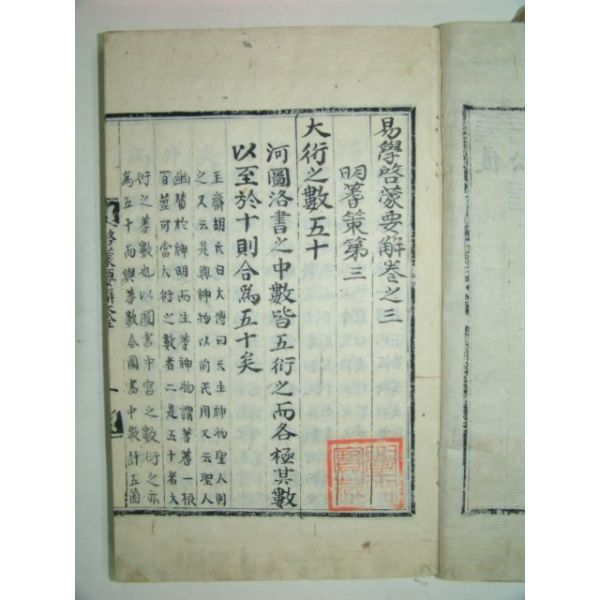 易學啓蒙要解卷之三
明蓍策第三
大衍之數五十
河圖洛書之中數皆五衍之而各極其數
以至於十則合爲五十矣
玉齋胡氏曰大傳曰天生神物聖人
則之又云是興神物以前民用又云聖人
幽贊於神明而生蓍神物謂蓍蓍一根
百莖可當大衍之數者二是五十者大
衍之蓍數也以圖書中宮之數衍之亦
爲五十而與蓍數合圖書中數計五箇
啓蒙要解卷